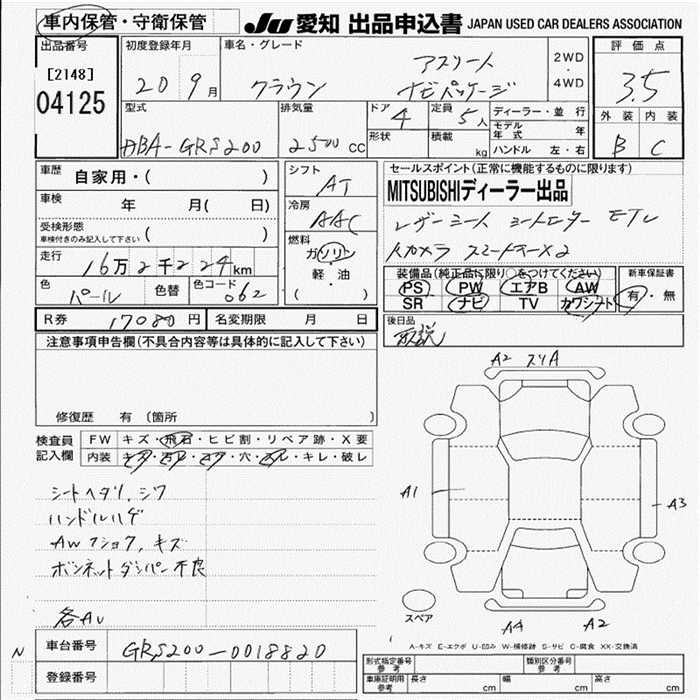 車内保管・守衛保管
JU 愛知 出品申込書 JAPAN USED CAR DEALERS ASSOCIATION
出品番号
[2148]
04125
初度登録年月
20 9月
車名・グレード
クラウン アスリート
ナビパッケージ
2WD
・
4WD
評価点
3.5
外装 内装
B C
型式
DBA-GRS200
排気量
2500cc
ドア
4
形状
定員
5人
積載
kg
ディーラー・並行
モデル年式 年
ハンドル 左・右
車歴
自家用・( )
車検
年 月( 日)
受検形態
車検付きのみ記入して下さい
( )
走行
16万2千224km
色
パール
色替
色コード
062
シフト
AT
冷房
AAC
燃料
ガソリン
・
軽・油
( )
セールスポイント(正常に機能するものに限ります)
MITSUBISHIディーラー出品
レザーシート シートエアー ETC
装備品(純正品に限り○をつけてください)
PS PW エアB AW
SR ナビ TV カワシート
新車保証書
有・無
後日品
取説
R券 17080円
名変期限 月 日
注意事項申告欄(不具合内容等は具体的に記入して下さい)
修復歴 有 (箇所 )
検査員
記入欄
FW キズ・飛石・ヒビ割・リペア跡・X要
内装 キズ・汚レ・コゲ・穴・スレ・キレ・破レ
シートヘタリ、シワ
ハンドルハゲ
AWフショク、キズ
ボンネットダンパー不良
各AU
A2 スリA
A1
A3
スペア
A4 A2
N
車台番号 GRS200-0018820
登録番号
A-キズ E-エクボ U-凹み W-補修跡 S-サビ C-腐食 XX-交換済
型式指定番号
参考
類別区分番号
参考
車庫証明用
参考
長さ cm
幅 cm
高さ cm